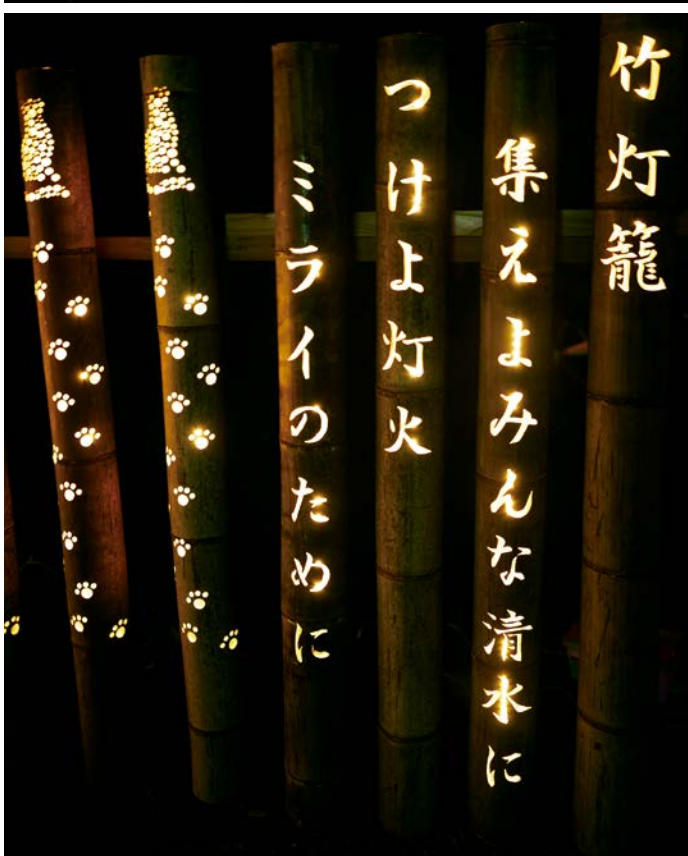 竹灯籠
集えよみんな清水に
つけよ灯火
ミライのために